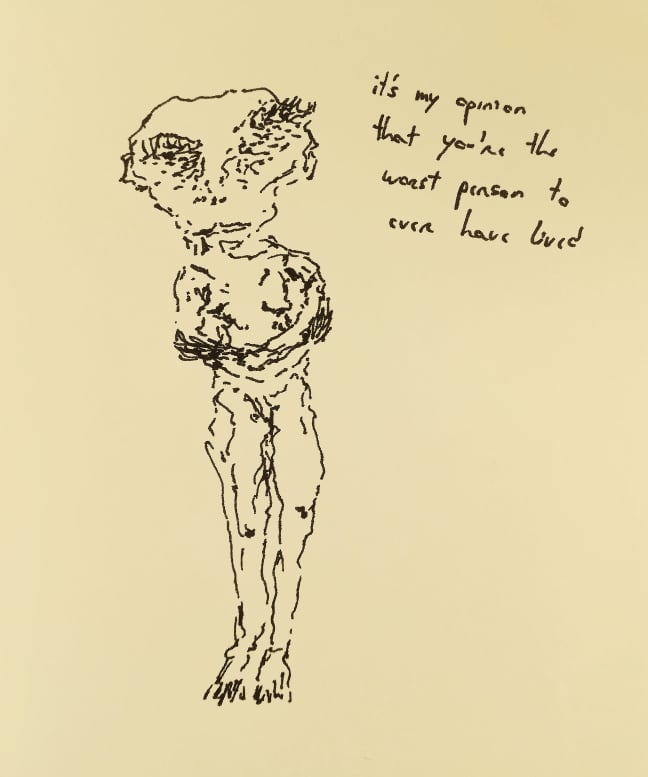 it's my opinion
that you're the
worst person to
ever have lived